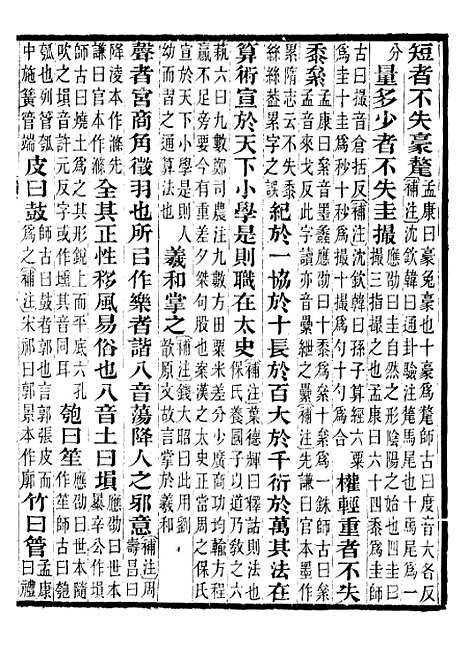 短者不失豪氂孟康曰豪兔豪也十豪爲氂師古曰度音大各反補注沈欽韓曰通卦驗注氂馬尾也十馬尾爲一
分量多少者不失圭撮應劭曰圭自然之形陰陽之始也四圭曰撮三指撮之也孟康曰六十四黍爲圭師
古曰撮音倉括反補注沈欽韓曰孫子算經六粟爲圭十圭爲秒十秒爲撮十撮爲勺十勺爲合權輕重者不失
黍絫孟康曰絫音蠡應劭曰十黍爲絫十絫爲一銖師古曰孟音來戈反此字讀亦音纍紲之纍補注先謙曰官本墨作
累隋志云不失黍絲絲蓋累字之誤紀於一協於十長於百大於千衍於萬其法在
算術宣於天下小學是則職在太史補注葉德輝曰釋詁則法也保氏養國子以道乃教之六
執六曰九數鄭司農注九數方田粟米差分少廣商功均輸方程贏不足旁要今有重差夕桀句股也案漢之太史正當周之保氏
宣於天下小學是則人幼而習之通算法也羲和掌之補注錢大昭曰此用劉歆原文故言掌於羲和
聲者宮商角徵羽也所㠯作樂者諧八音蕩降人之邪意補注周壽昌曰
降淩本作滌先謙曰官本作滌全其正性移風易俗也八音土曰塤應劭曰世本暴辛公作塤
師古曰燒土爲之其形銳上而平底六孔吹之塤音許元反字或作壎其音同耳匏曰笙應劭曰世本隨作笙師古曰匏
瓠也列管瓠中施簧管端皮曰鼓師古曰鼓者郭也言郭張皮而爲之補注宋祁曰郭景本作廓竹曰管孟康曰禮